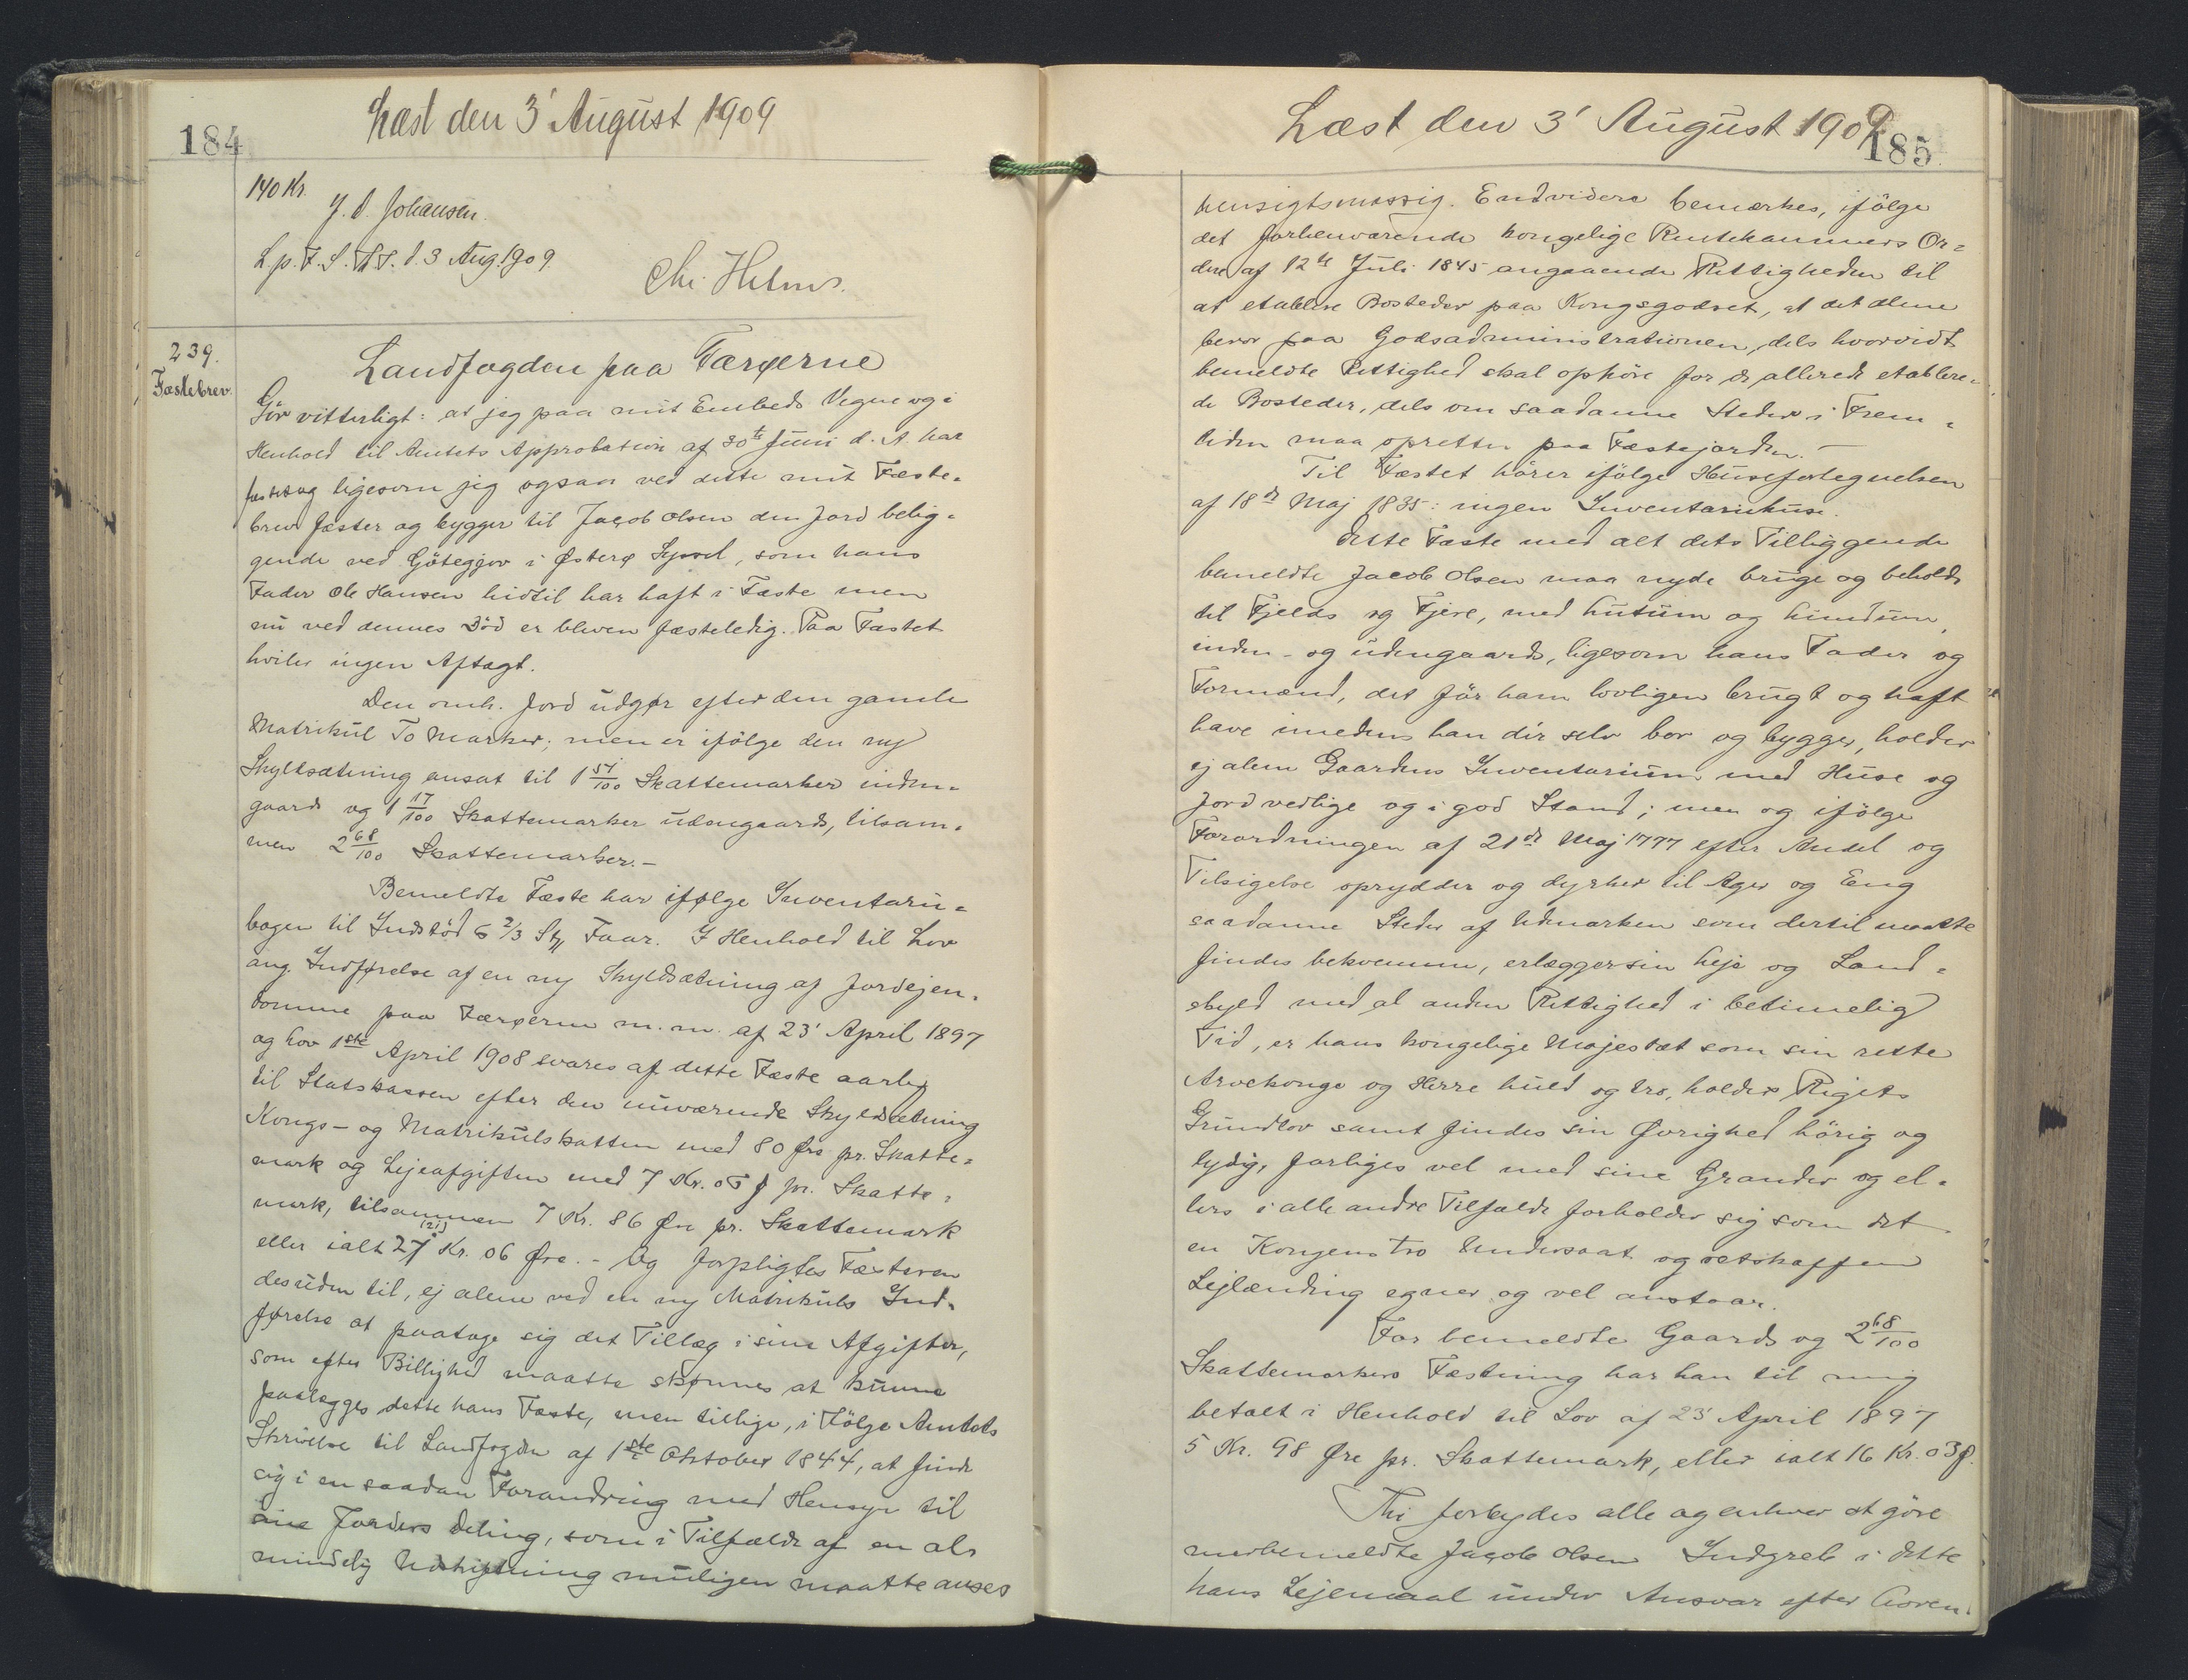 184
Læst den 3' August 1909
140 Kr.
J. d. Johansen.
L. p. F. S. T. S. d. 3 Aug. 1909
Chr. Helms.
239.
Fæstebrev.
Landfogden paa Færøerne
Gör vitterligt: at jeg paa mit Embeds Vegne og i
Henhold til Amtets Approbation af 30te Juni d. A. har
fæstet og ligesom jeg ogsaa ved dette mit Fæste=
brev fæster og bygger til Jacob Olsen den Jord belig=
gende ved Götegjov i Østerø Syssel, som hans
Fader Ole Hansen hidtil har haft i Fæste men
nu ved dennes Död er bleven fæsteledig. Paa Fæstet
hviler ingen Aftægt.
Den omh. Jord udgør efter den gamle
Matrikul To Marker; men er ifölge den ny
Skyldsætning ansat til 1 51/100 Skattemarker inden=
gaards og 1 17/100 Skattemarker udengaards, tilsam=
men 2 68/100 Skattemarker. -
Bemeldte Fæste har ifølge Inventarie=
bogen til Indstöd 6 2/3 Stk Faar. I Henhold til Lov
ang. Indførelse af en ny Skyldsætning af Jordejen=
domme paa Færøerne m. m. af 23' April 1897
og Lov 1ste April 1908 svares af dette Fæste aarlig
til Statskassen efter den nuværende Skyldsætning
Kongs- og Matrikulskatten med 80 Øre pr. Skatte=
mark og Lejeafgiften med 7 Kr. 06 ø pr. Skatte=
mark, tilsammen 7 Kr. 86 Øre pr. Skattemark
(21)
eller ialt 27 Kr. 06 Øre. - Og forpligtes Fæsteren
desuden til, ej alene ved en ny Matrikuls Ind=
førelse at paatage sig det Tillæg i sine Afgifter,
som efter Billighed maatte skønnes at kunne
paalægges dette hans Fæste, men tillige, i Fölge Amtets
Skrivelse til Landfogden af 1ste Oktober 1844, at finde
sig i en saadan Forandring med Hensyn til
sine Jorders Deling, som i Tilfælde af en al=
mindelig Udskiftning muligen maatte anses
Læst den 3' August 1909
185.
hensigtsmæssig. Endvidere bemærkes, ifölge
det forhenværende kongelige Rentekammers Or=
dre af 12te Juli 1845 angaaende Rettigheden til
at etablere Bosteder paa Kongsgodset, at det alene
beror paa Godsadministrationen, dels hvorvidt
bemeldte Rettighed skal ophöre for de allerede etablere=
de Bosteder, dels om saadanne Steder i Frem=
tiden maa oprettes paa Fæstejorden. -
Til Fæstet hörer ifölge Husefortegnelsen
af 18de Maj 1835: ingen Inventariehuse.
Dette Fæste med alt dets Tilliggende
bemeldte Jacob Olsen maa nyde bruge og beholde
til Fjelds og Fjere, med hutum og hundum,
inden- og udengaards, ligesom hans Fader og
Formænd, det för ham lovligen brugt og haft
have imedens han dér selv bor og bygger, holder
ej alene Gaardens Inventarium med Huse og
Jord vedlige og i god Stand; men og ifölge
Forordningen af 21de Maj 1777 efter Andel og
Tilsigelse oprydder og dyrker til Ager og Eng
saadanne Steder af Udmarken som dertil maatte
findes bekvemme, erlægger sin Leje og Land=
skyld med al anden Rettighed i betimelig
Tid, er hans kongelige Majestæt som sin rette
Arvekonge og Herre huld og tro, holder Rigets
Grundlov samt findes sin Øvrighed hörig og
lydig, forliges vel med sine Grander og el=
lers i alle andre Tilfælde forholder sig som det
en Kongens tro Undersaat og retskaffen
Lejlænding egner og vel anstaar.
For bemeldte Gaards og 2 68/100
Skattemarkers Fæstning har han til mig
betalt i Henhold til Lov af 23' April 1897
5 Kr. 98 Øre pr. Skattemark, eller ialt 16 Kr. 03 ø.
Thi forbydes alle og enhver at göre
merbemeldte Jacob Olsen Indgreb i dette
hans Lejemaal under Ansvar efter Loven.